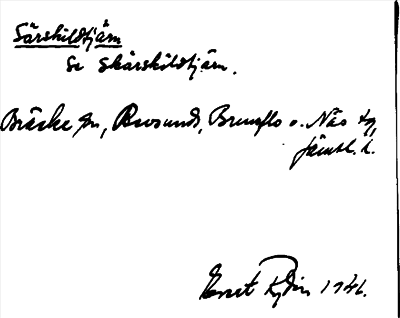 Särskildtjärn
Se Skärskildtjärn.
Bräcke sn, Revsunds, Brunflo o. Näs tg,
Jämtl. l.
Ernst Rydin 1941.